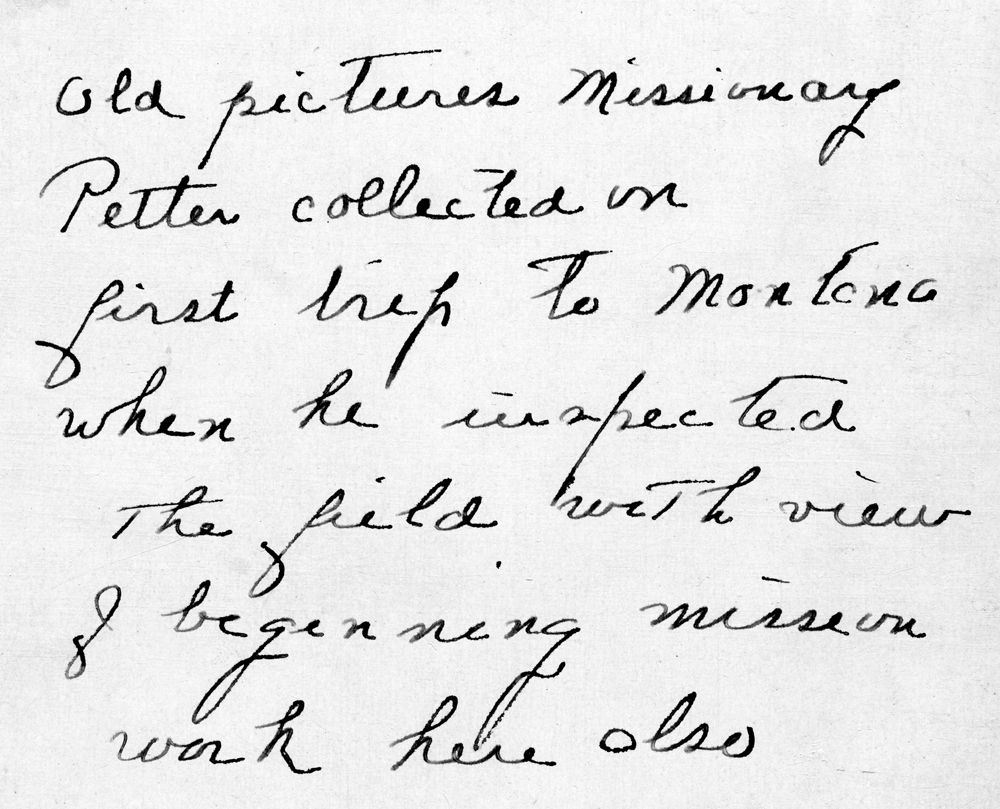 Old pictures Missionary
Petter collected on
first trip to Montana
when he inspected
the field with view
of beginning mission
work here also